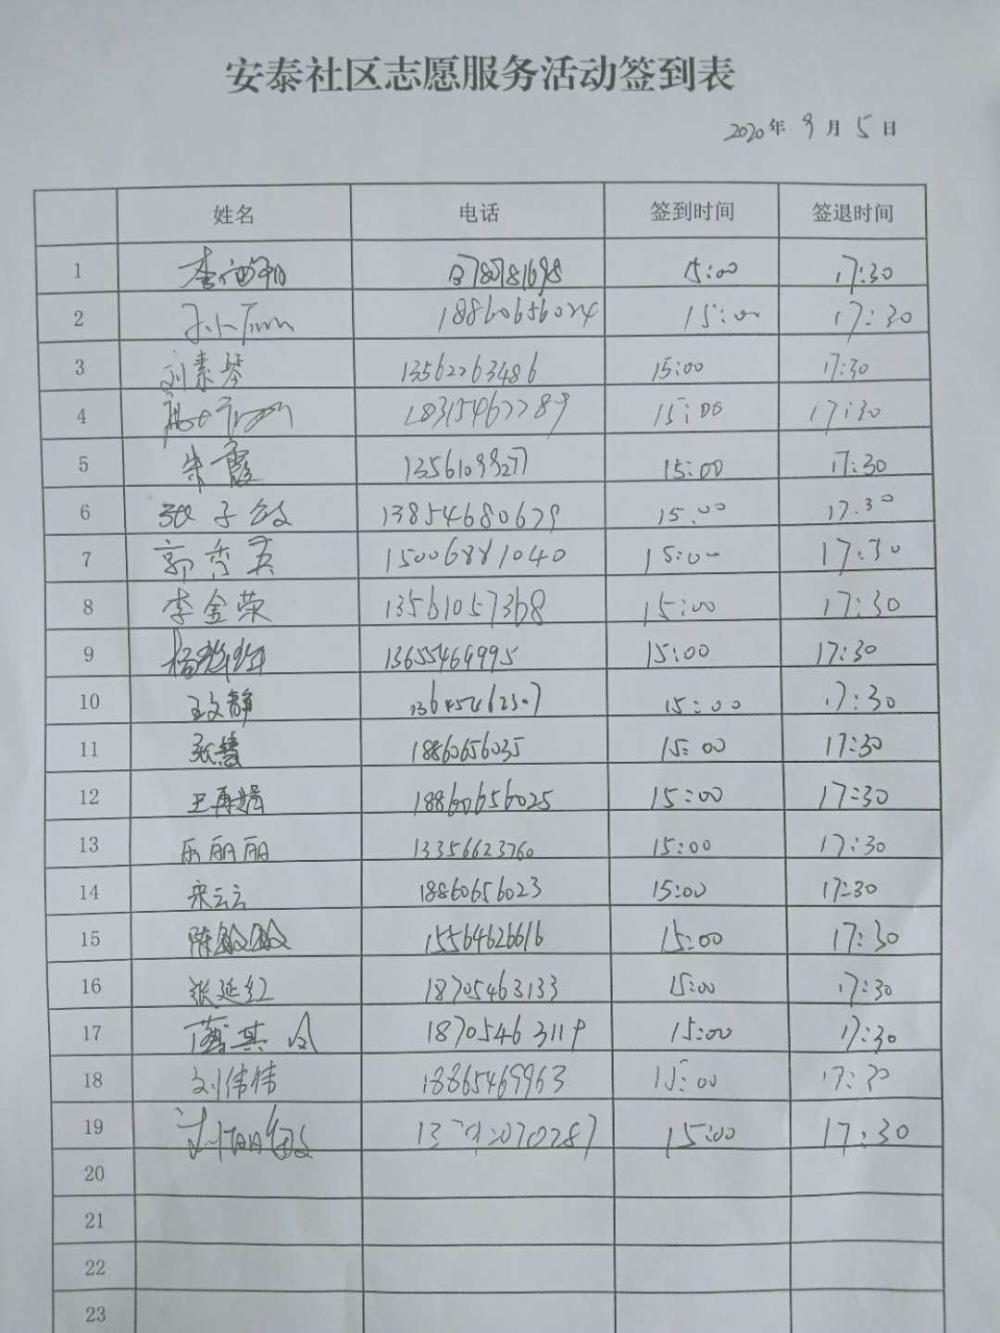 安泰社区志愿服务活动签到表
2020年 9月 5日
姓名 电话 签到时间 签退时间
1 15:00 17:30
2 18860656024 15:00 17:30
3 刘素琴 13562263486 15:00 17:30
4 18315462289 15:00 17:30
5 朱霞 13561099277 15:00 17:30
6 张子敏 13854680679 15:00 17:30
7 郭秀英 15006881040 15:00 17:30
8 李金荣 13561057368 15:00 17:30
9 13655469995 15:00 17:30
10 王文静 15:00 17:30
11 张慧 18860656035 15:00 17:30
12 王再娟 18860656025 15:00 17:30
13 丽丽 13356623760 15:00 17:30
14 宋云云 18860656023 15:00 17:30
15 陈敏敏 15564626616 15:00 17:30
16 张延红 18705463133 15:00 17:30
17 18705463119 15:00 17:30
18 刘伟伟 18865469963 15:00 17:30
19 15:00 17:30
20
21
22
23